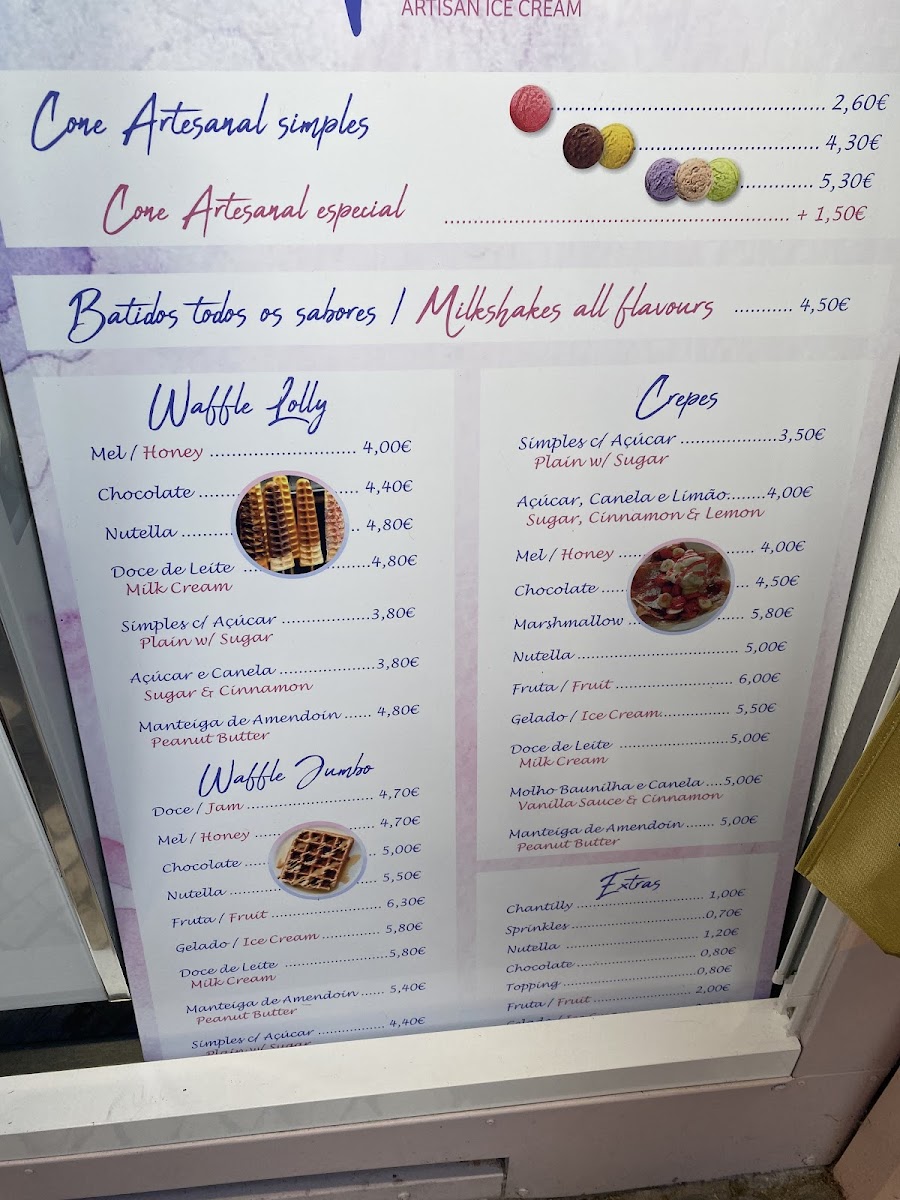 ARTISAN ICE CREAM
Cone Artesanal simples
.......... 2,60€
.......... 4,30€
.......... 5,30€
Cone Artesanal especial .......... + 1,50€
Batidos todos os sabores / Milkshakes all flavours .......... 4,50€
Waffle Lolly
Mel / Honey .......... 4,00€
Chocolate .......... 4,40€
Nutella .......... 4,80€
Doce de Leite .......... 4,80€
Milk Cream
Simples c/ Açúcar .......... 3,80€
Plain w/ Sugar
Açúcar e Canela .......... 3,80€
Sugar & Cinnamon
Manteiga de Amendoin ...... 4,80€
Peanut Butter
Waffle Jumbo
Doce / Jam .......... 4,70€
Mel / Honey .......... 4,70€
Chocolate .......... 5,00€
Nutella .......... 5,50€
Fruta / Fruit .......... 6,30€
Gelado / Ice Cream .......... 5,80€
Doce de Leite .......... 5,80€
Milk Cream
Manteiga de Amendoin ...... 5,40€
Peanut Butter
Simples c/ Açúcar .......... 4,40€
Plain w/ Sugar
Crepes
Simples c/ Açúcar .......... 3,50€
Plain w/ Sugar
Açúcar, Canela e Limão........4,00€
Sugar, Cinnamon & Lemon
Mel / Honey .......... 4,00€
Chocolate .......... 4,50€
Marshmallow .......... 5,80€
Nutella .......... 5,00€
Fruta / Fruit .......... 6,00€
Gelado / Ice Cream.......... 5,50€
Doce de Leite .......... 5,00€
Milk Cream
Molho Baunilha e Canela ....5,00€
Vanilla Sauce & Cinnamon
Manteiga de Amendoin ....... 5,00€
Peanut Butter
Extras
Chantilly .......... 1,00€
Sprinkles .......... 0,70€
Nutella .......... 1,20€
Chocolate .......... 0,80€
Topping .......... 0,80€
Fruta / Fruit .......... 2,00€